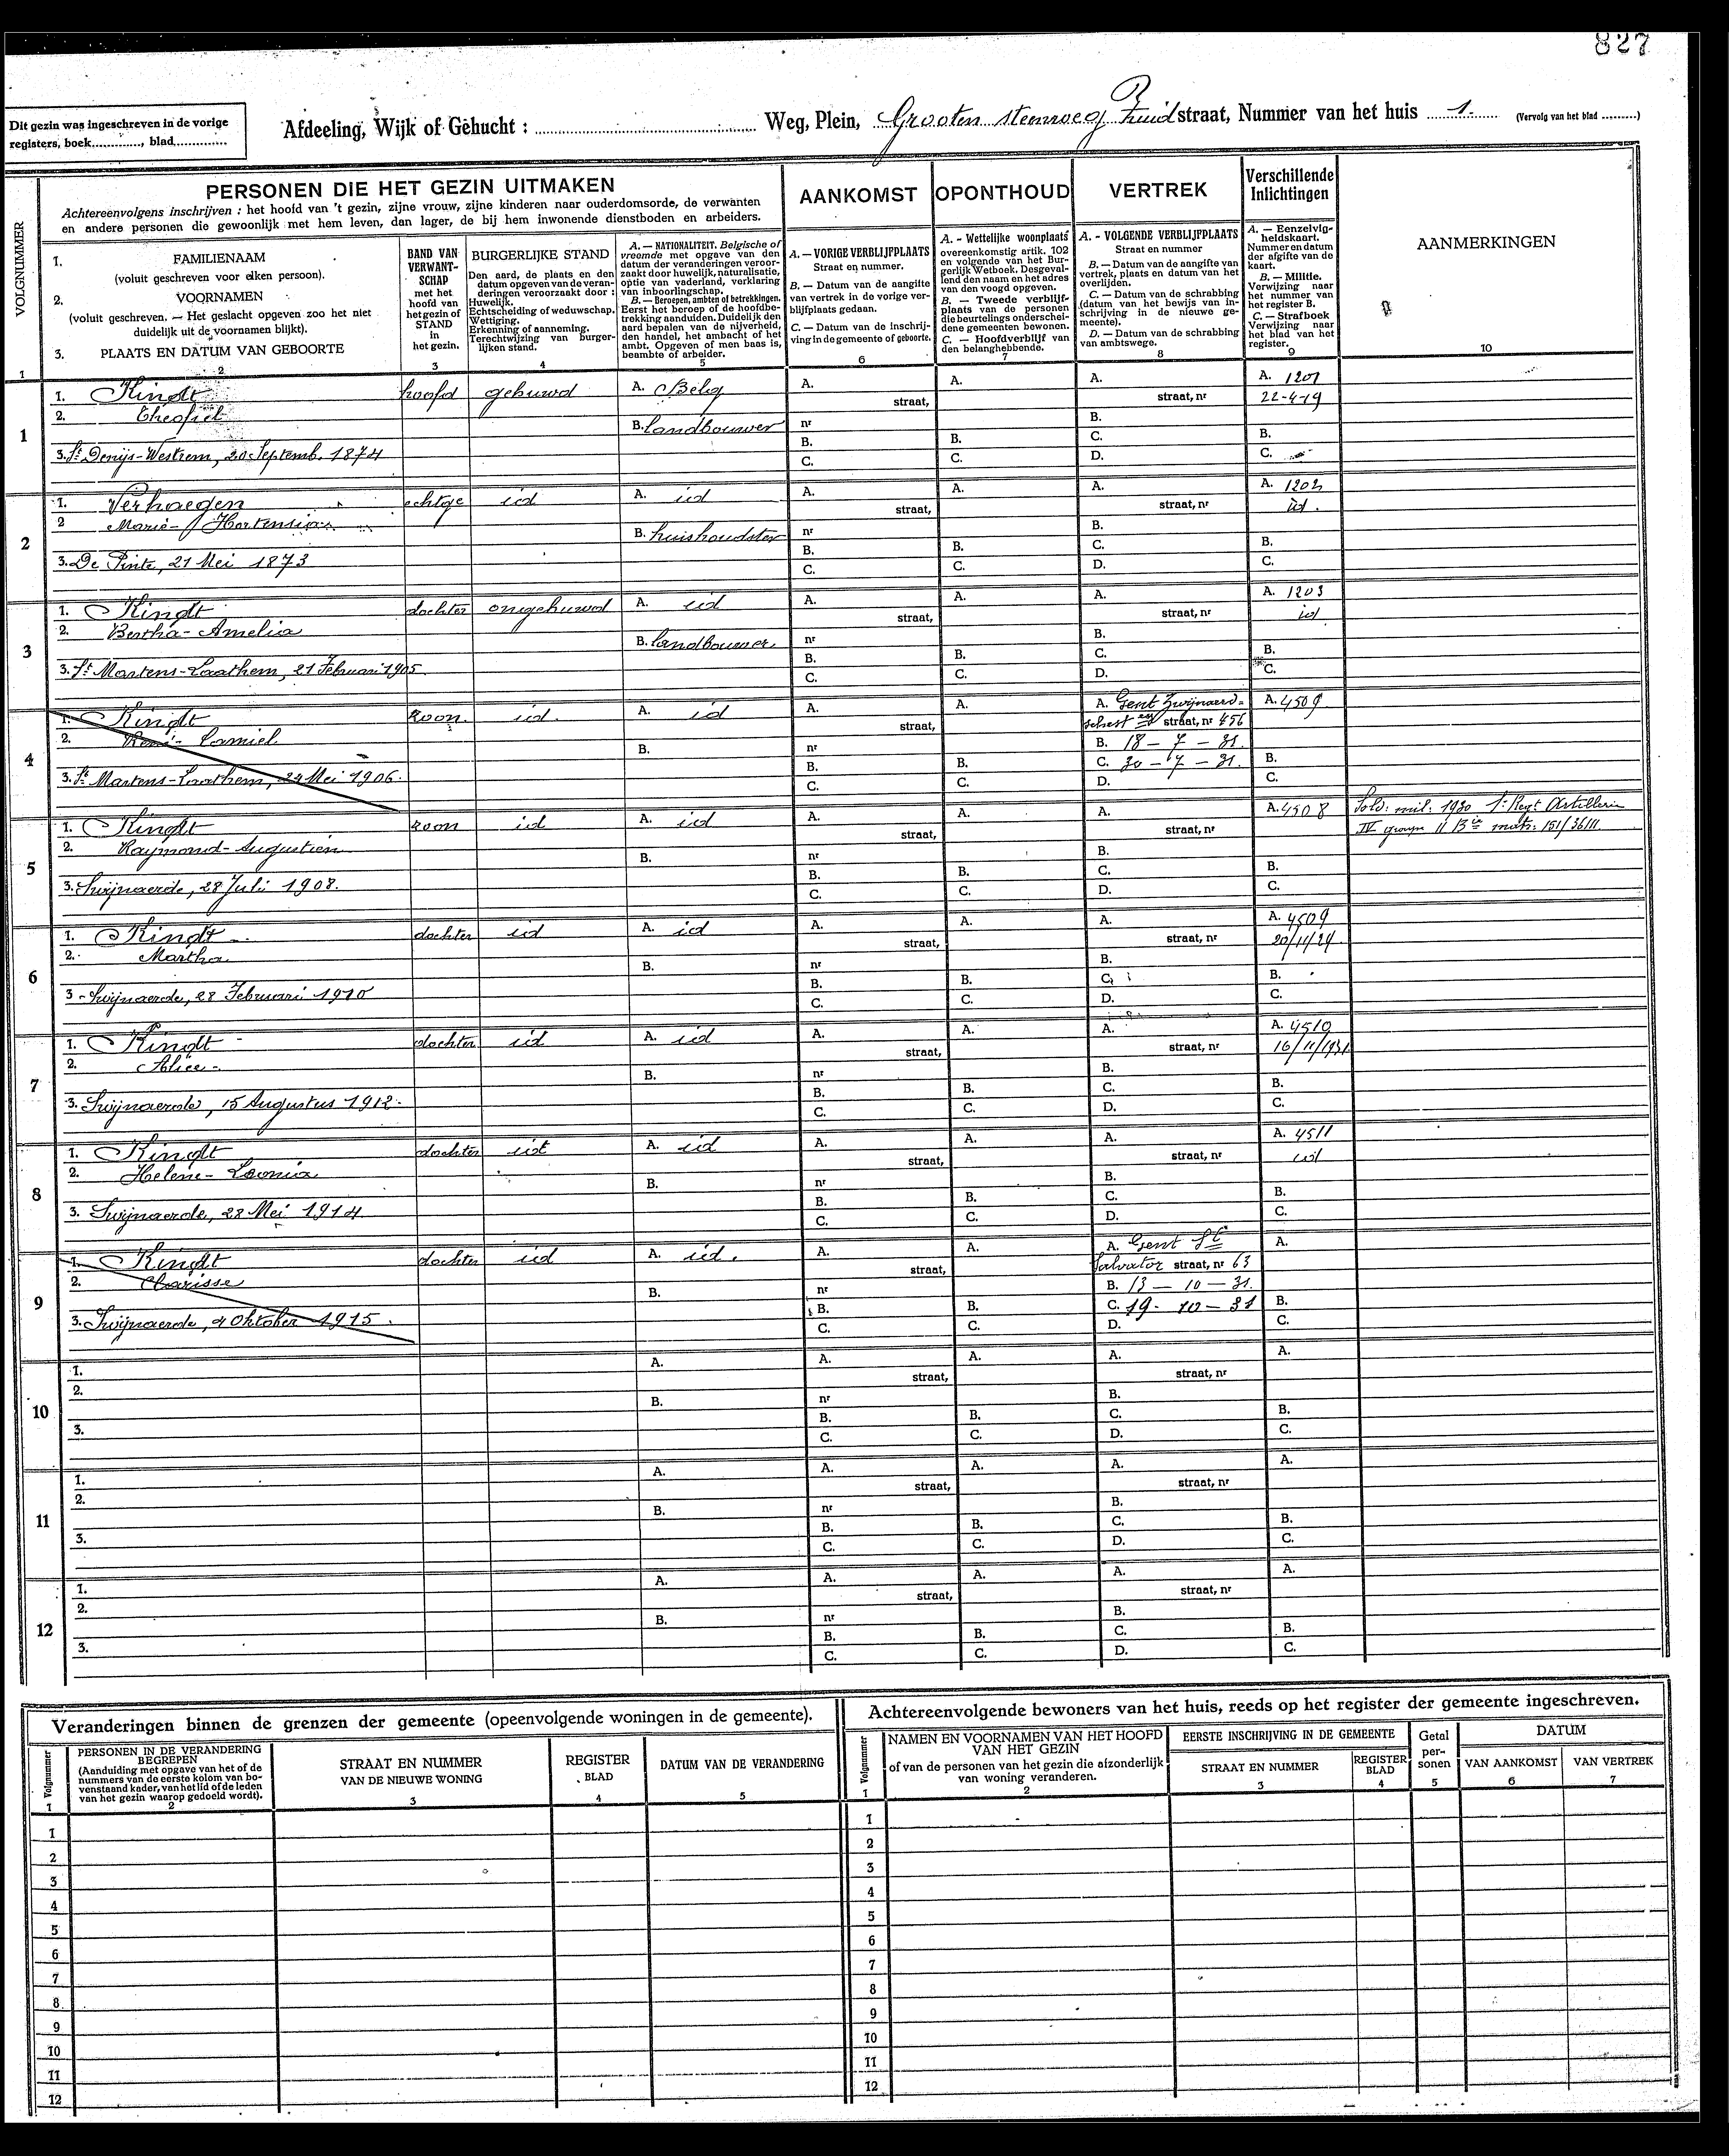 827
Dit gezin was ingeschreven in de vorige
registers, boek............, blad..............
Afdeeling, Wijk of Gehucht : ........ Weg, Plein, Grooten steenweg Zuid straat, Nummer van het huis 1. (Vervolg van het blad ..........)
VOLGNUMMER
PERSONEN DIE HET GEZIN UITMAKEN
Achtereenvolgens inschrijven : het hoofd van 't gezin, zijne vrouw, zijne kinderen naar ouderdomsorde, de verwanten
en andere personen die gewoonlijk met hem leven, dan lager, de bij hem inwonende dienstboden en arbeiders.
1. FAMILIENAAM
(voluit geschreven voor elken persoon).
2. VOORNAMEN
(voluit geschreven. — Het geslacht opgeven zoo het niet
duidelijk uit de voornamen blijkt).
3. PLAATS EN DATUM VAN GEBOORTE
BAND VAN
VERWANT-
SCHAP
met het
hoofd van
het gezin of
STAND
in
het gezin.
BURGERLIJKE STAND
Den aard, de plaats en den
datum opgeven van de veran-
deringen veroorzaakt door :
Huwelijk.
Echtscheiding of weduwschap.
Wettiging.
Erkenning of aanneming.
Terechtwijzing van burger-
lijken stand.
A. — NATIONALITEIT. Belgische of
vreemde met opgave van den
datum der veranderingen veroor-
zaakt door huwelijk, naturalisatie,
optie van vaderland, verklaring
van inboorlingschap.
B. — Beroepen, ambten of betrekkingen.
Eerst het beroep of de hoofdbe-
trekking aanduiden. Duidelijk den
aard bepalen van de nijverheid,
den handel, het ambacht of het
ambt. Opgeven of men baas is,
beambte of arbeider.
AANKOMST
A. — VORIGE VERBLIJFPLAATS
Straat en nummer.
B. — Datum van de aangifte
van vertrek in de vorige ver-
blijfplaats gedaan.
C. — Datum van de inschrij-
ving in de gemeente of geboorte.
OPONTHOUD
A. - Wettelijke woonplaats
overeenkomstig artik. 102
en volgende van het Bur-
gerlijk Wetboek. Desgeval-
lend den naam en het adres
van den voogd opgeven.
B. — Tweede verblijf-
plaats van de personen
die beurtelings onderschei-
dene gemeenten bewonen.
C. — Hoofdverblijf van
den belanghebbende.
VERTREK
A. - VOLGENDE VERBLIJFPLAATS
Straat en nummer
B. — Datum van de aangifte van
vertrek, plaats en datum van het
overlijden.
C. — Datum van de schrabbing
(datum van het bewijs van in-
schrijving in de nieuwe ge-
meente).
D. — Datum van de schrabbing
van ambtswege.
Verschillende
Inlichtingen
A. — Eenzelvig-
heidskaart.
Nummer en datum
der afgifte van de
kaart.
B. — Militie.
Verwijzing naar
het nummer van
het register B.
C. — Strafboek
Verwijzing naar
het blad van het
register.
AANMERKINGEN
1 2 3 4 5 6 7 8 9 10
1
1. Kindt hoofd gehuwd A. Belg A. straat, A. A. straat, nr A. 1201
2. Theofiel B. landbouwer nr B. 22-4-19
3. St Denijs-Westrem, 20 Septemb. 1874 B. C. B. C. C. D. B. C.
2
1. Verhaegen echtge id A. id A. straat, A. A. straat, nr A. 1202
2 Marie-Hortensia B. huishoudster nr B. id.
3. De Pinte, 21 Mei 1873 B. C. B. C. C. D. B. C.
3
1. Kindt dochter ongehuwd A. id A. straat, A. A. straat, nr A. 1203
2. Bertha-Amelia B. landbouwer. nr B. id
3. St Martens-Laathem, 21 Februari 1905. B. C. B. C. C. D. B. C.
4
1. Kindt zoon. id. A. id A. straat, A. A. Gent Zwijnaerd= A. 4509
2. René-Camiel B. nr schest eeg straat, nr 456
B. 18 - 7 - 31.
3. St Martens-Laathem, 22 Mei 1906. B. C. B. C. C. 30 - 7 - 31. D. B. C.
5
1. Kindt zoon id A. id A. straat, A. A. straat, nr A. 4508 Sold: mil: 1930 1e Regt Artillerie
2. Raymond-Augustien B. nr B. IV groupe 11 Bie matr: 151/36111.
3. Swijnaerde, 28 Juli 1908. B. C. B. C. C. D. B. C.
6
1. Kindt dochter id A. id A. straat, A. A. straat, nr A. 4509
2. Martha B. nr B. 20/11/29.
3 - Swijnaerde, 28 Februari 1910 B. C. B. C. C. D. B. C.
7
1. Kindt dochter id A. id A. straat, A. A. straat, nr A. 4510
2. Alice B. nr B. 16/11/1931
3. Swijnaerde, 15 Augustus 1912. B. C. B. C. C. D. B. C.
8
1. Kindt dochter id A. id A. straat, A. A. straat, nr A. 4511
2. Helene-Leonia B. nr B. id
3. Swijnaerde, 28 Mei 1914. B. C. B. C. C. D. B. C.
9
1. Kindt dochter id A. id. A. straat, A. A. Gent St A.
2. Clarisse B. nr Salvator straat, nr 63
B. 13 - 10 - 31.
3. Swijnaerde, 4 Oktober 1915. B. C. B. C. C. 19 - 10 - 31 D. B. C.
10
1. A. A. straat, A. A. straat, nr A.
2. B. nr B.
3. B. C. B. C. C. D. B. C.
11
1. A. A. straat, A. A. straat, nr A.
2. B. nr B.
3. B. C. B. C. C. D. B. C.
12
1. A. A. straat, A. A. straat, nr A.
2. B. nr B.
3. B. C. B. C. C. D. B. C.
Veranderingen binnen de grenzen der gemeente (opeenvolgende woningen in de gemeente).
Volgnummer
PERSONEN IN DE VERANDERING
BEGREPEN
(Aanduiding met opgave van het of de
nummers van de eerste kolom van bo-
venstaand kader, van het lid of de leden
van het gezin waarop gedoeld wordt).
STRAAT EN NUMMER
VAN DE NIEUWE WONING
REGISTER
BLAD
DATUM VAN DE VERANDERING
1 2 3 4 5
1
2
3
4
5
6
7
8
9
10
11
12
Achtereenvolgende bewoners van het huis, reeds op het register der gemeente ingeschreven.
Volgnummer
NAMEN EN VOORNAMEN VAN HET HOOFD
VAN HET GEZIN
of van de personen van het gezin die afzonderlijk
van woning veranderen.
EERSTE INSCHRIJVING IN DE GEMEENTE
STRAAT EN NUMMER
REGISTER
BLAD
Getal
per-
sonen
DATUM
VAN AANKOMST
VAN VERTREK
1 2 3 4 5 6 7
1
2
3
4
5
6
7
8
9
10
11
12